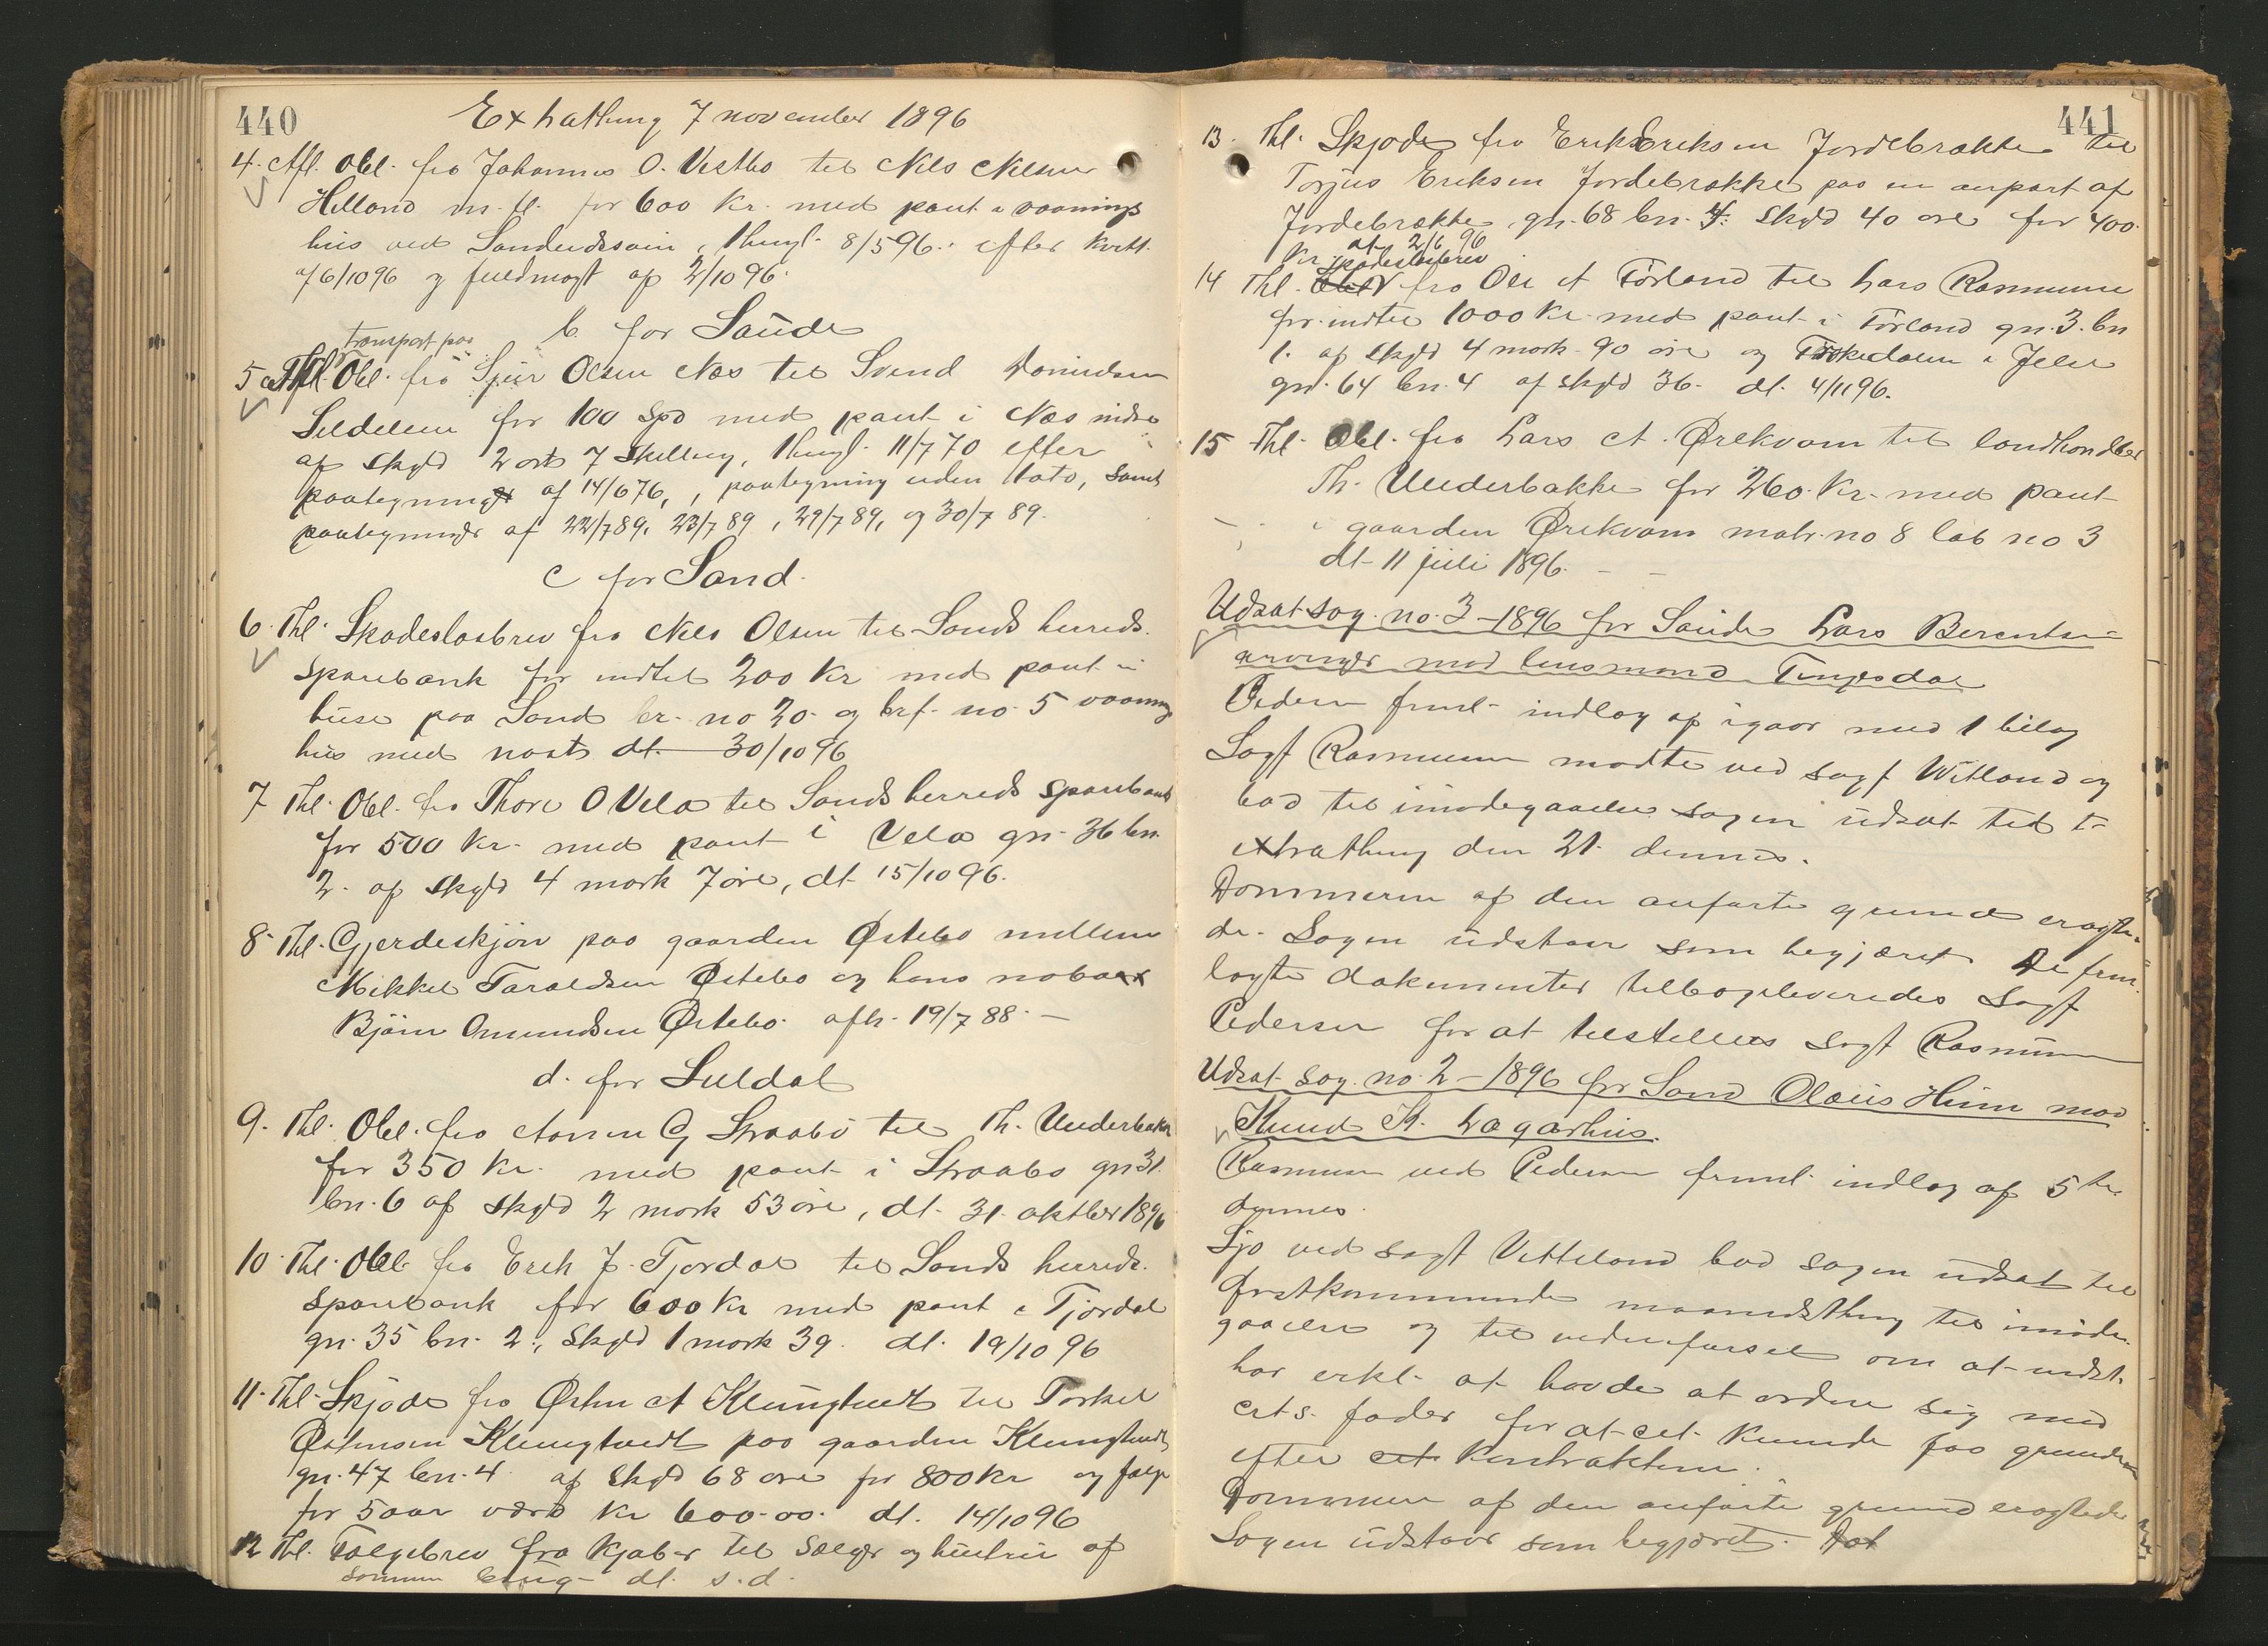 440
Extrathing 7 november 1896
4. Afl. Obl. fra Johannes O. Vestbø til Nils Nilsen
Helland m. fl. for 600 Kr. med pant i vaanings
hus ved Sandeidsøen, thingl. 8/5 96. efter kvitt.
af 6/10 96 og fuldmagt af 2/10 96.
b. for Saude
transport paa
5 Thl. Obl. fra Sjur Olsen Næs til Svend Danielsen
for 100 Spd med pant i Næs nedre
af skyld 2 ort 7 Skilling, thingl. 11/7 70 efter
paategning af 14/6 76, paategning uden dato, samt
paategninger af 22/7 89, 23/7 89, 29/7 89, og 30/7 89.
c for Sand.
6. Thl. Skadesløsbrev fra Nils Olsen til Sands herreds
sparebank for indtil 200 Kr med pant i
huse paa Sand br. no 20. og brf. no. 5 vaanings
hus med nøst dt. 30/10 96
7 Thl. Obl. fra Thore O Vela til Sands herreds sparebank
for 500 Kr. med pant i Vela gn. 36 bn.
2. af skyld 4 mark 7 øre, dt. 15/10 96.
8. Thl. Gjerdeskjøn paa gaarden Østebø mellem
Mikkel Taraldsen Østebø og hans naboer
Bjørn Omundsen Østebø. afh. 19/7 88. –
d. for Suldal
9. Thl. Obl. fra G Straabø til Th. Underbakke
for 350 Kr. med pant i Straabø gn 31.
bn. 6 af skyld 2 mark 53 øre, dt. 31. oktbr 1896
10. Thl. Obl. fra Erik J. Tjørdal til Sands herreds
sparebank for 600 Kr med pant i Tjørdal
gn. 35 bn. 2., skyld 1 mark 39. dt. 19/10 96
11. Thl. Skjøde fra Østen A Klungtveit til Torkel
Østensen Klungtveit paa gaarden Klungtveit
gn. 47 bn. 4. af skyld 68 øre for 800 Kr og følge
for 5 aar værd Kr 600.00. dt. 14/10 96
12 Thl. Følgebrev fra kjøber til sælger og hustru af
samme brug dt. s.d.
441
13. Thl. Skjøde fra Erik Eriksen Jordebrække til
Torjus Eriksen Jordebrække paa en anpart af
Jordebrække, gn. 68 bn. 4. skyld 40 øre for 400.
Kr. dt. 2/6 96
skadesløsbrev
14 Thl. fra Ole A Førland til Lars Rasmussen
for indtil 1000 Kr. med pant i Førland gn. 3. bn
1. af skyld 4 mark 90 øre og i Jelse
gn. 64 bn. 4 af skyld 36. dt. 4/11 96.
15 Thl. Obl. fra Lars A. Ørekvam til landhandler
Th. Underbakke for 260. Kr. med pant
i gaarden Ørekvam matr. no 8 løb no 3
dt. 11 juli 1896.
Udsat sag. no. 3 – 1896 for Saude Lars Berentsens
arvinger mod lensmand Tengesdal
Pedersen freml. indlæg af igaar med 1 bilag
Sagf Rasmussen mødte ved sagf Vetland og
bad til imødegaaelse sagen udsat til
extrathing den 21. dennes.
Dommeren af den anførte grund eragte-
de. Sagen udstaar som begjæret. De frem-
lagte dokumenter tilbageleveredes Sagf
Pedersen for at tilstilles Sagf Rasmussen
Udsat sag. no. 2 – 1896 for Sand Olaus Hiim mod
Knud K. Lagarhus.
Rasmussen ved Pedersen freml. indlæg af 5te
dennes.
ved sagf Vetteland bad sagen udsat til
førstkommende maanedsthing til imøde-
gaaelse og til vidneførsel om at indst.
har erkl. at havde at ordne sig med
cit s. fader for at cit. kunde faa grunden
efter cit. kontrakten.
Dommeren af den anførte grund eragtede
Sagen udstaar som begjæret. Dat